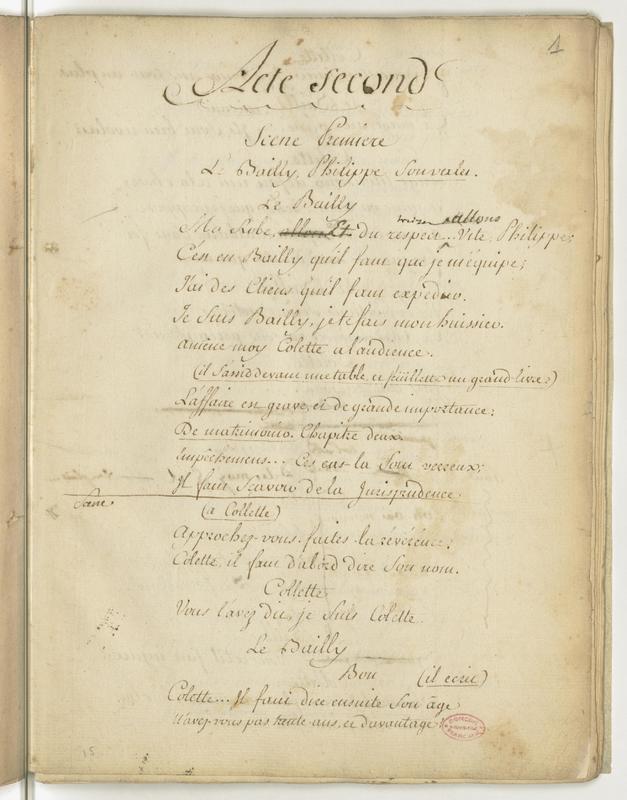 1
Acte second
Scene Premiere
Le Bailly, Philippe Souvrales.
Le Bailly
allons
Ma Robe, allons Et du respect... Vite, Philippe;
C'est en Bailly quil faut que je m'equipe;
J'ai des Cliens quil faut expedier.
Je Suis Bailly, je te fais mon huissier.
amene moy Colette a l'audience.
(il S'assied devant une table, et feüillette un grand livre)
L'affaire est grave, et de grande importance;
De matrimonio. Chapitre deux.
Impêchemens... Ces cas-la Sont verreux;
Il faut Scavoir de la Jurisprudence.
Scene
(a Collette)
Approchez-vous. faites la révérence;
Colette, il faut d'abord dire Son nom.
Collette
Vous l'avez dit, je Suis Colette.
Le Bailly
Bon (il ecrit)
Colette... Il faut dire ensuite Son âge
N'avez-vous pas trente ans, et davantage?
15